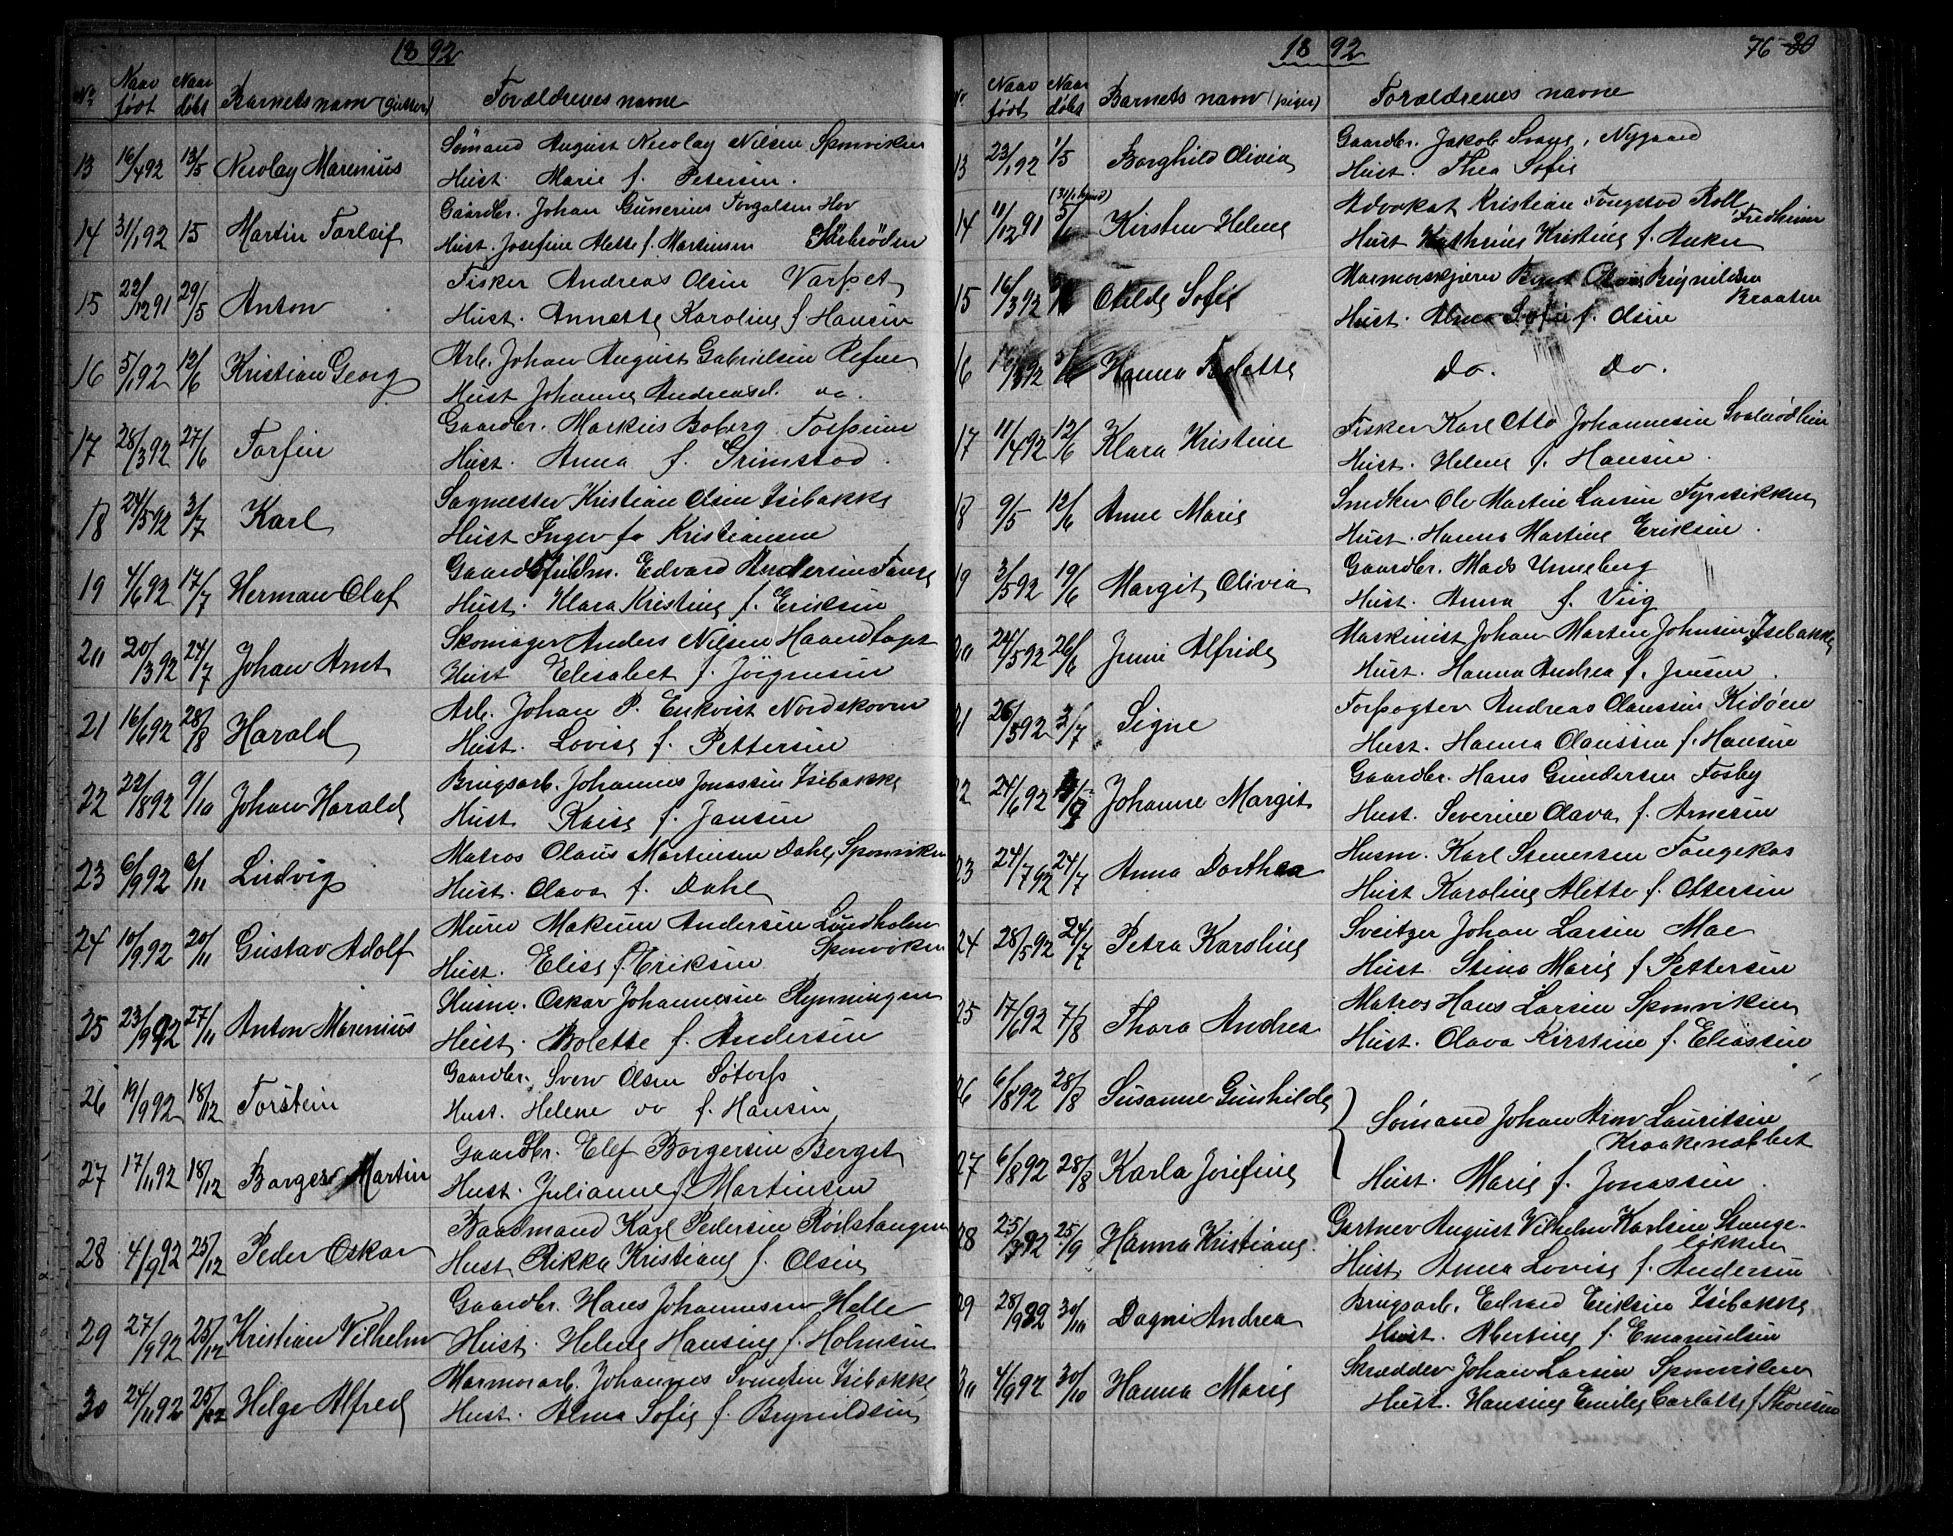 1892
No. Naar født Naar døbt Barnets navn (Gutter) Forældrenes navne
13 16/4 92 13/5 Nicolay Marenius Sømand August Nicolay Nilsen Sponviken
Hust. Marie f. Petersen.
14 31/1 92 15 Martin Torleif Gaardbr. Johan Gunerius Torgalsen Hov
Hust. Josefine Alette f. Martinsen
15 22/12 91 29/5 Anton Fisker Andreas Olsen Varpet
Hust. Annette Karoline f Hansen
16 5/1 92 12/6 Kristian Georg Arb. Johan August Gabrielsen Refne
Hust Johanne Andreasd. do.
17 28/3 92 27/6 Torfin Gaardbr. Markus Boberg Torpum
Hust. Anna f. Grimstad.
18 24/5 92 3/7 Karl Sagmester Kristian Olsen Isebakke
Hust Inger fø Kristiansen
19 4/6 92 17/7 Herman Olaf Gaardbr Edvard Andersen
Hust. Klara Kristine f. Eriksen
20 20/3 92 24/7 Johan Arnt Skomager Anders Nilsen
Hust Elisabet f. Jörgensen
21 16/6 92 28/8 Harald Arb. Johan P. Enkvist Nordskoven
Hust. Lovise f. Pettersen
22 22/8 92 9/10 Johan Harald Brugsarb. Johannes Jonassen Isebakke
Hust Kaise f. Jansen
23 6/9 92 6/11 Ludvig Matros Olaus Martinsen Dahle, Sponviken
Hust. Olava f. Dahl
24 10/9 92 20/11 Gustav Adolf Murer Andersen Lundholm
Hust. Elise f. Eriksen Sponviken
25 23/9 92 27/11 Anton Marenius Husm. Oskar Johannesen Rynningen
Hust. Bolette f. Andersen
26 19/9 92 18/12 Torstein Gaardbr. Sven Olsen Sötorp
Hust. Helene do f. Hansen
27 17/11 92 18/12 Borger Martin Gaardbr. Elef Borgersen Berget
Hust. Julianne f Martinsen
28 4/9 92 25/12 Peder Oskar Baadmand Karl Pedersen Röilstangen
Hust Rikka Kristiane f. Olsen
29 27/9 92 25/12 Kristian Vilhelm Gaardbr. Hans Johannesen Helle
Hust. Helene Hansine f. Holmsen
30 24/11 92 25/12 Helge Alfred Marmorarb. Johannes Svendsen Isebakke
Hust. Alma Sofie f. Brynildsen
1892 76 80
No Naar født Naar døbt Barnets navn (piger) Forældrenes navne
13 23/1 92 1/5 Borghild Olivia Gaardbr. Jakob, Nygaard
Hust. Thea Sofie
14 11/12 91 5/ Kirsten Helene Advokat Kristian Tongstad Roll
Fredheim
Hust Kathrine Kristine f. Anker
15 16/3 92 Otilde Sofie Brynildsen
Braaten
Hust. Alma Sofie f. Olsen
16 92 5/6 Hanna Bolette Do. Do.
17 11/4 92 12/6 Klara Kristine Fisker Karl Otto Johannesen Svalerødkin
Hust. Helene f. Hansen.
18 9/5 12/6 Anne Marie Snedker Ole Martin Larsen
Hust. Hanna Martine Eriksen.
19 3/5 92 19/6 Margit Olivia Gaardbr. Mads Unneberg
Hust. Anna f. Viig
20 24/5 92 26/6 Jenni Alfride Maskinist Johan Martin Johnsen, Isebakke
Hust. Hanna Andrea f. Jensen.
21 26/5 92 3/7 Signe Torpogter Andreas Olaussen Kidøen
Hust. Hanna Olaussen f. Hansen
22 24/6 92 Johanne Margit Gaardbr. Hans Gundersen Fosby
Hust. Severine Olava f. Arnesen
23 24/7 92 24/7 Anna Dorthea Husm. Karl Stenersen Tangekas
Hust Karoline Alette f. Ottersen
24 28/5 92 24/7 Petra Karoline Sveitzer Johan Larsen Mae
Hust. Stina Marie f. Pettersen
25 17/6 92 7/8 Thora Andrea Matros Hans Larsen Sponviken
Hust. Olava Kirstine f. Eliassen
26 6/8 92 28/8 Susanne Gunhilde Sømand Johan Arnv Lauritsen
Kraakenabbet
27 6/8 92 28/8 Karla Josefine Hust. Marie f. Jonassen.
28 25/ 92 25/9 Hanna Kristiane. Gartner August Vilhelm Karlsen Stange-
løkken
Hust. Anna Lovise f. Andersen
29 28/9 92 30/10 Dagni Andrea Brugsarb. Edvard Eriksen Isebakke
Hust. Albertine f. Emanuelsen
30 4/9 92 30/10 Hanna Marie Skrædder Johan Larsen Sponviken
Hust. Hansine Emilie Carlotte f. Thoresen